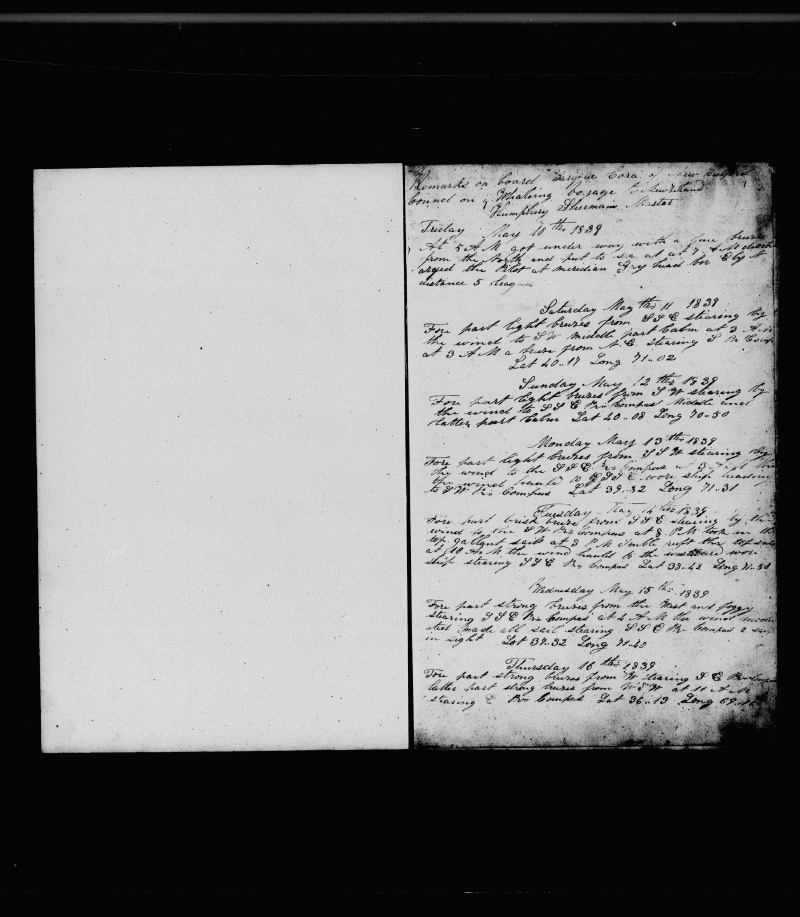 Remarks on board Barque Cora of New Bedford
bound on a Whaling voyage to New Zealand
Humphrey Shearman Master
Friday May 10th 1839
At 5 A M got under way with a fine breeze
from the North and put to sea at 7 A M disch
arged the Pilot at meridian Gay head bor E by N
distance 5 leagues
Saturday May the 11 1839
Fore part light brezes from S S E stearing by
the wind to S W middle part Calm at 3 A M
at 3 A M a breze from N E stearing S Pr Comp
Lat 40..17 Long 71..02
Sunday May 12 the 1839
Fore part light brezes from S W stearing by
the wind to S S E Pr Compas Middle and
latter part Calm Lat 40..08 Long 70..50
Monday May 13 the 1839
Fore part light brezes from S S W stearing by
the wind to the S S E Pr Compas at 3
the wind hauld to S S E wore ship heading
to S W Pr Compas Lat 39..32 Long 71..31
Tuesday May 14 the 1839
Fore part brisk breze from S S E stearing by the
wind to the S W Pr Compas at 8 P M took in the
top gallant sails at 3 P M double reft the topsails
at 10 A M the wind hauld to the westward wore
ship stearing S S E Pr Compas Lat 38..42 Long 71..50
Wednesday May 15 the 1839
Fore part strong brezes from the West and foggy
stearing S S E Pr Compas at 4 A M the wind moder
ated made all sail stearing S S E Pr Compas 2 sails
in sight Lat 37..32 Long 71..40
Thursday 16 the 1839
Fore part strong brezes from W stearing S E Pr Compas
latter part strong brezes from W S W at 11 A M
stearing E Pr Compas Lat 36..13 Long 69